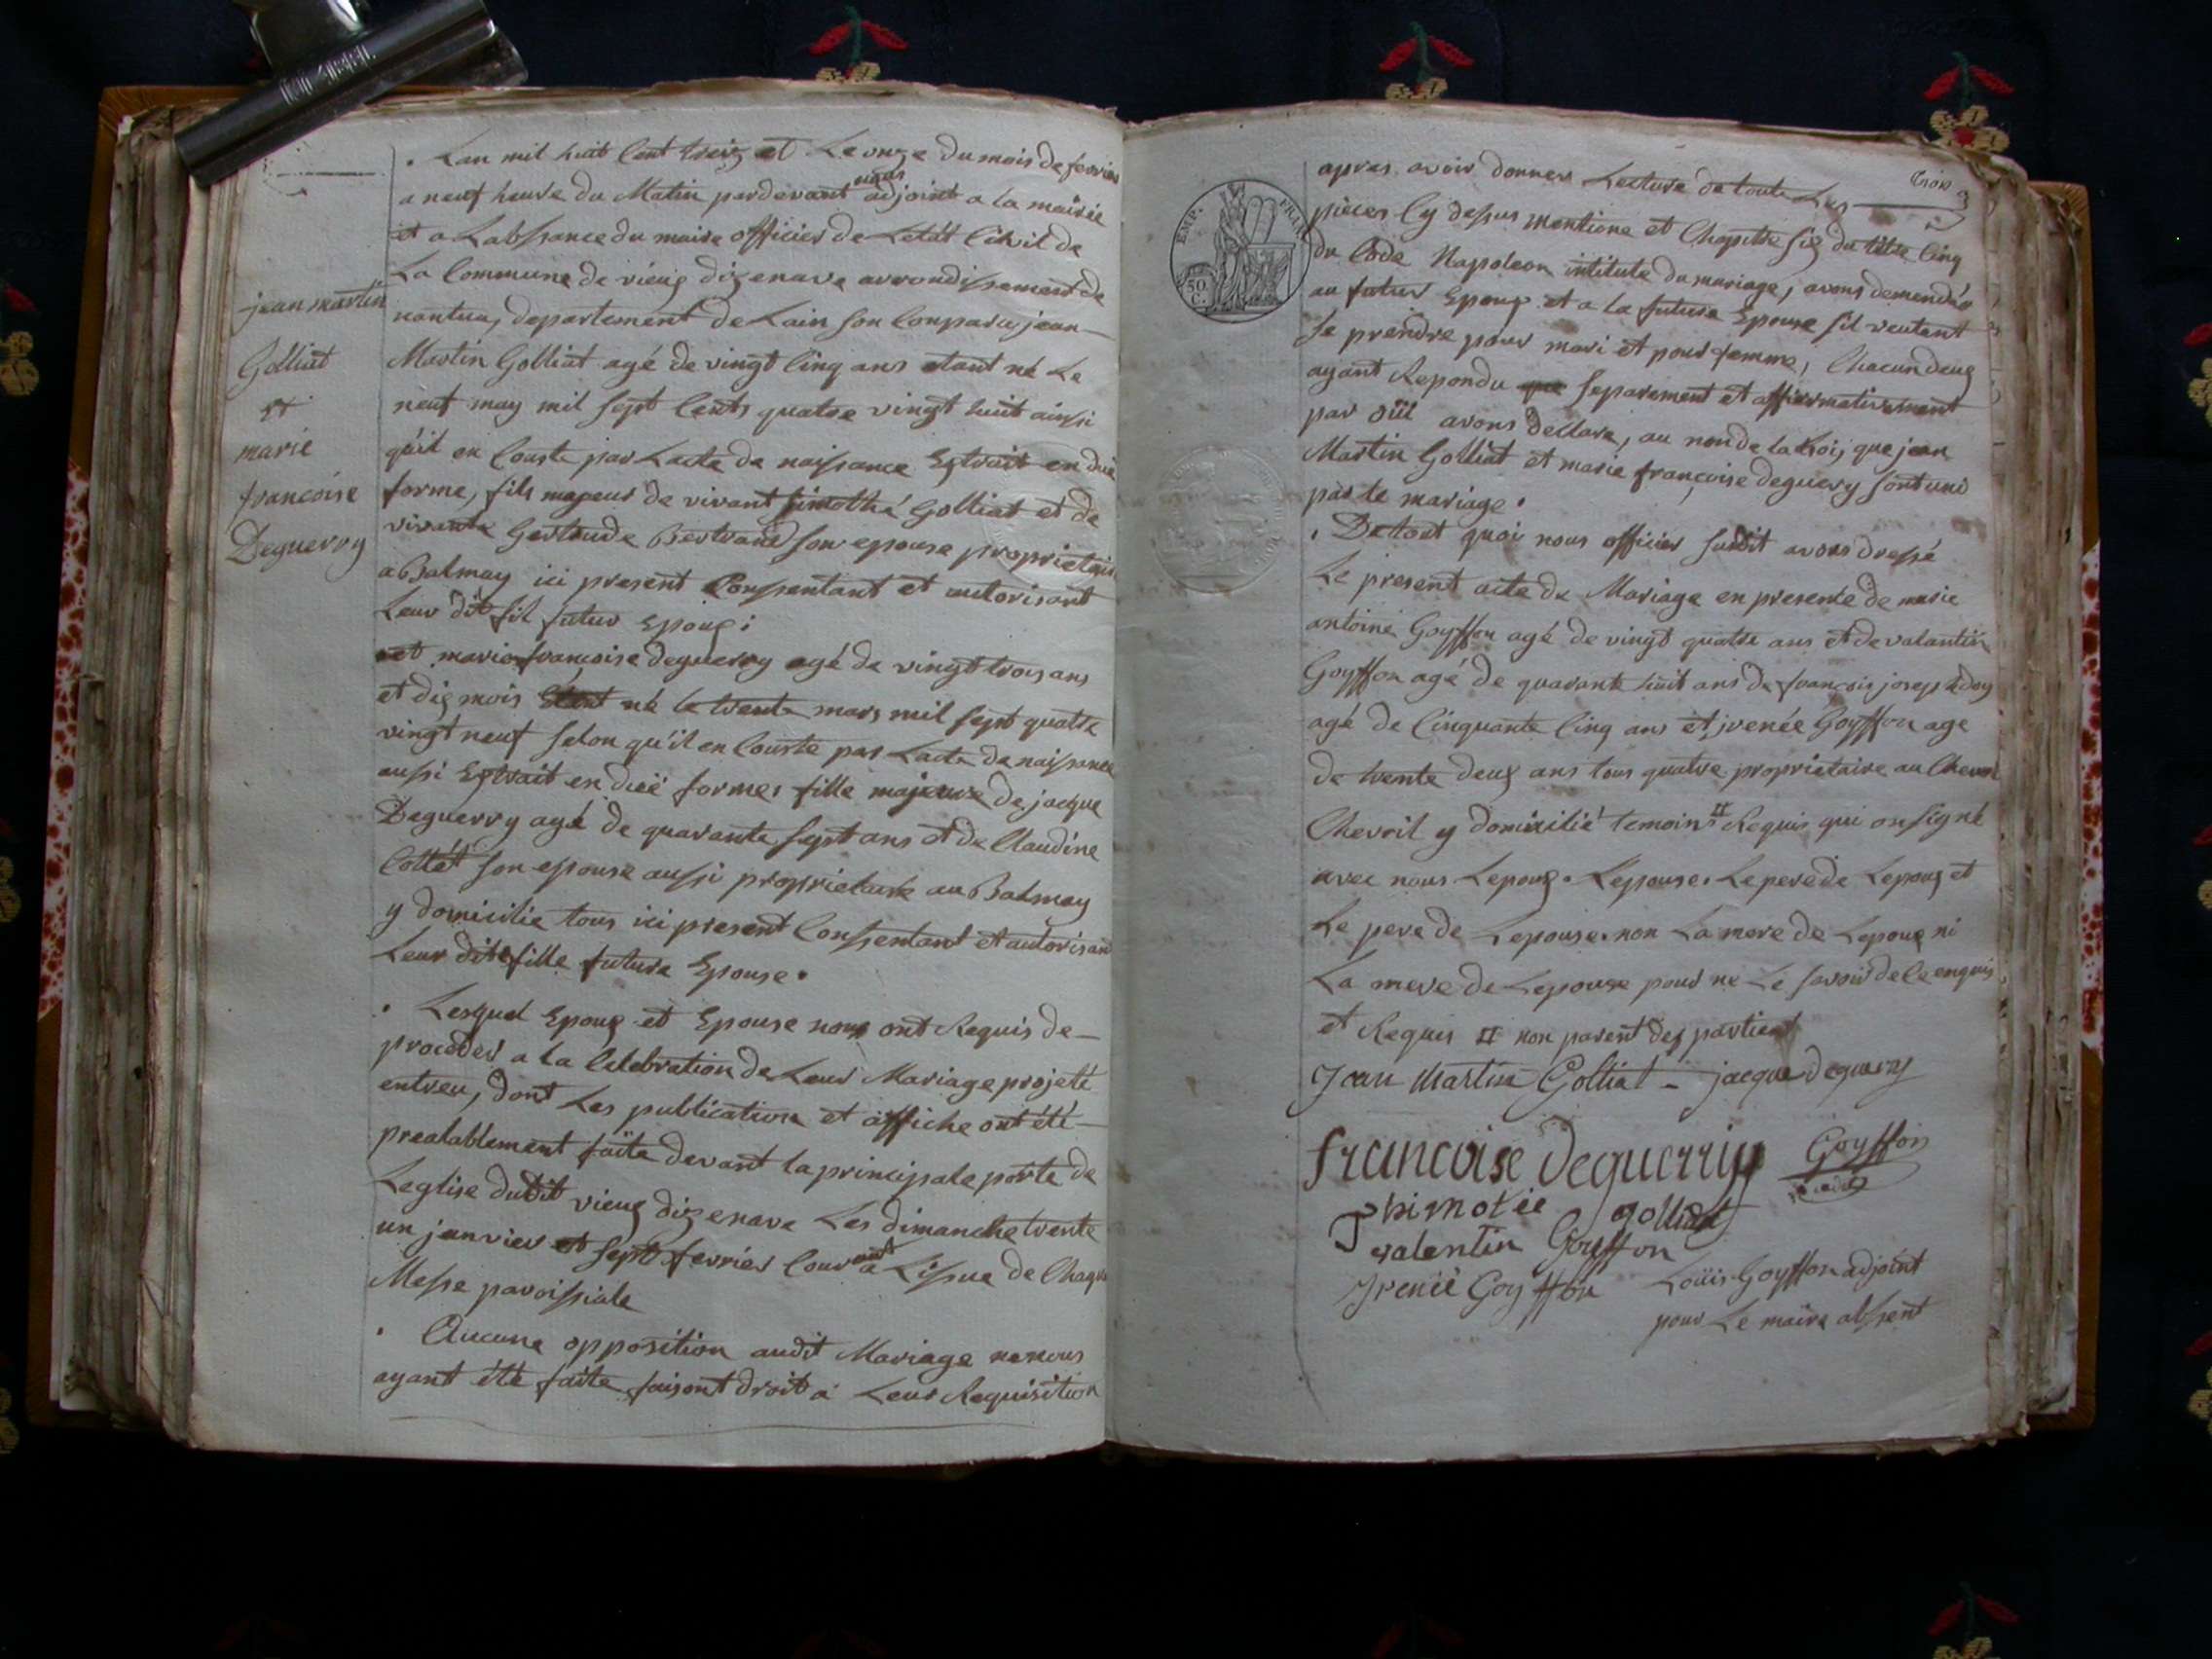 . Lan mil huit Cent treiz et Le onze du mois de fevrier
a neuf heure du Matin pardevant nous adjoint a la mairie
et a Labssance du maire officier de Letat Civil de
La Commune de vieux dizenave arrondissement de
jean martin
nantua, departement de Lain son Comparu jean
Golliat
et
marie
francoise
Deguerry
Martin Golliat agé de vingt Cinq ans etant né Le
neuf may mil sept Cents quatre vingt huit ainssi
qu'il en Conste par Lacte de naissance Extrait en duë
forme, fils majeur de vivant timothé Golliat et de
vivante Gertrude Bertrand son epouse proprietaire
a Balmay ici present Conssentant et autorisant
Leur dit fil futur Epoux;
et marie francoise deguerry agé de vingt trois ans
et dix mois Etent né le trente mars mil sept quatre
vingt neuf selon qu'il en Conste par Lacte de naissance
aussi Extrait en duë forme, fille majeure de jacque
Deguerry agé de quarante sept ans et de Claudine
Collét son epouse aussi proprietaire au Balmay
y domicilie tous ici present Conssentant et autorisant
Leur dite fille future Epouse.
. Lesquel Epoux et Epouse nous ont Requis de
proceder a la Celebration de Leur Mariage projeté
entreu, dont Les publication et affiche ont été
prealablement faite devant la principale porte de
Leglise dudit vieux dizenave Les dimanche trente
un janvier et sept fevrier Courant a Lissue de Chaque
Messe paroissiale
. Aucune opposition audit Mariage ne nous
ayant été faite faisont droit a Leur Requisition
trois
3
EMP. FRAN.
50. C.
apres avoir donner Lecture de toute Les
pièces Cy dessus mentione et Chapitre six du titre Cinq
du Code Napoleon intitule du mariage, avons demendér
au futur Epoux et a la future Epouse sil veulent
se prendre pour mari et pour femme, Chacun deux
ayant Repondu separement et affiermativement
par oüi avons declare, au non de la Loi, que jean
Martin Golliat et marie françoise deguery sont uni
par le mariage.
. De tout quoi nous officier susdit avons dressé
Le present acte de Mariage en presence de marie
antoine Goyffon agé de vingt quatre ans et de valantin
Goyffon agé de quarante huit ans de francois joseph
agé de Cinquante Cinq ans et jrenée Goyffon age
de trente deux ans tous quatre proprietaire au
Chevril y domicilié temoins # Requis qui on signé
avec nous Lepoux. Lepouse. Le pere de Lepoux et
Le pere de Lepouse. non La mere de Lepoux ni
La mere de Lepouse pour ne Le savoir de ce enquis
et Requis # non parent des parties
Jean Martin Golliat - jacque deguery
francoise deguerriy Goyffon
Thimotée golliat
valentin Goyffon
Jreneé Goyffon Loüis Goyffon adjoint
pour Le maire abssent